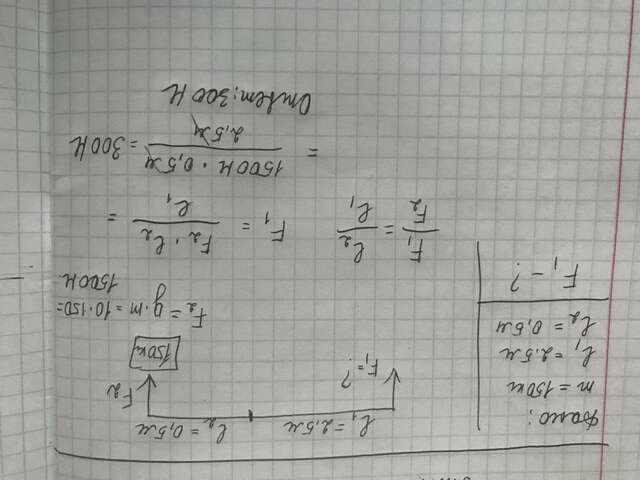 Дано:
m = 150кг
l₁ = 2,5м
l₂ = 0,5м
F₁ - ?
l₁ = 2,5м
l₂ = 0,5м
F₁ = ?
F₂
150кг
F₂ = g·m = 10·150=
1500Н.
F₁/F₂ = l₂/l₁
F₁ = F₂·l₂/l₁ =
= 1500Н · 0,5м/2,5м = 300Н
Ответ: 300Н